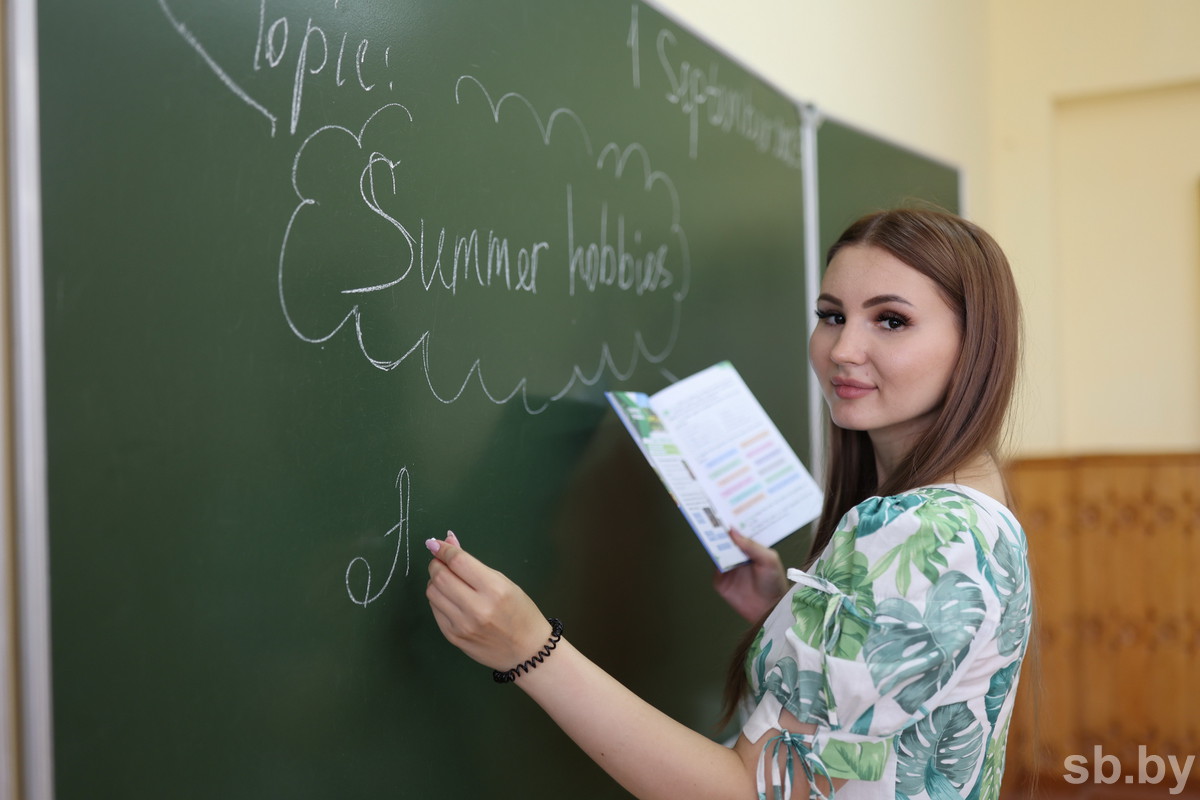 Topic:
1 September
Summer hobbies
A
sb.by